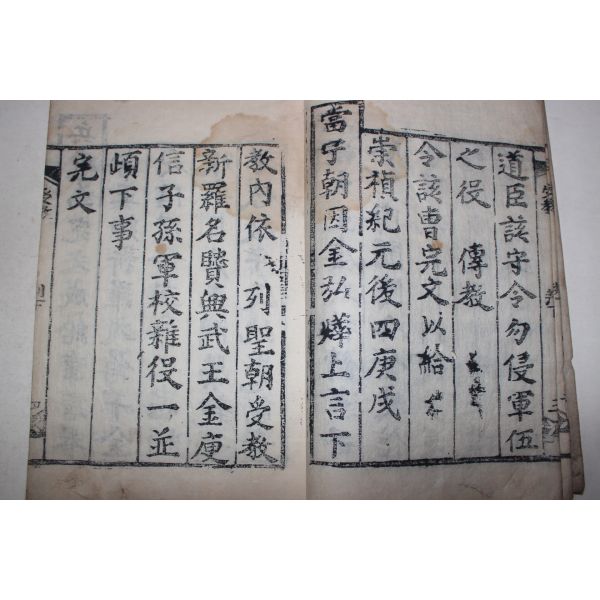 道臣該守令勿侵軍伍
之役 傳教
令該曹完文以給
崇禎紀元後四庚戌
當宁朝因金弘燁上言下
教內依 列聖朝受教
新羅名賢興武王金庾
信子孫軍校雜役一並
頉下事
完文
受教
受教
三